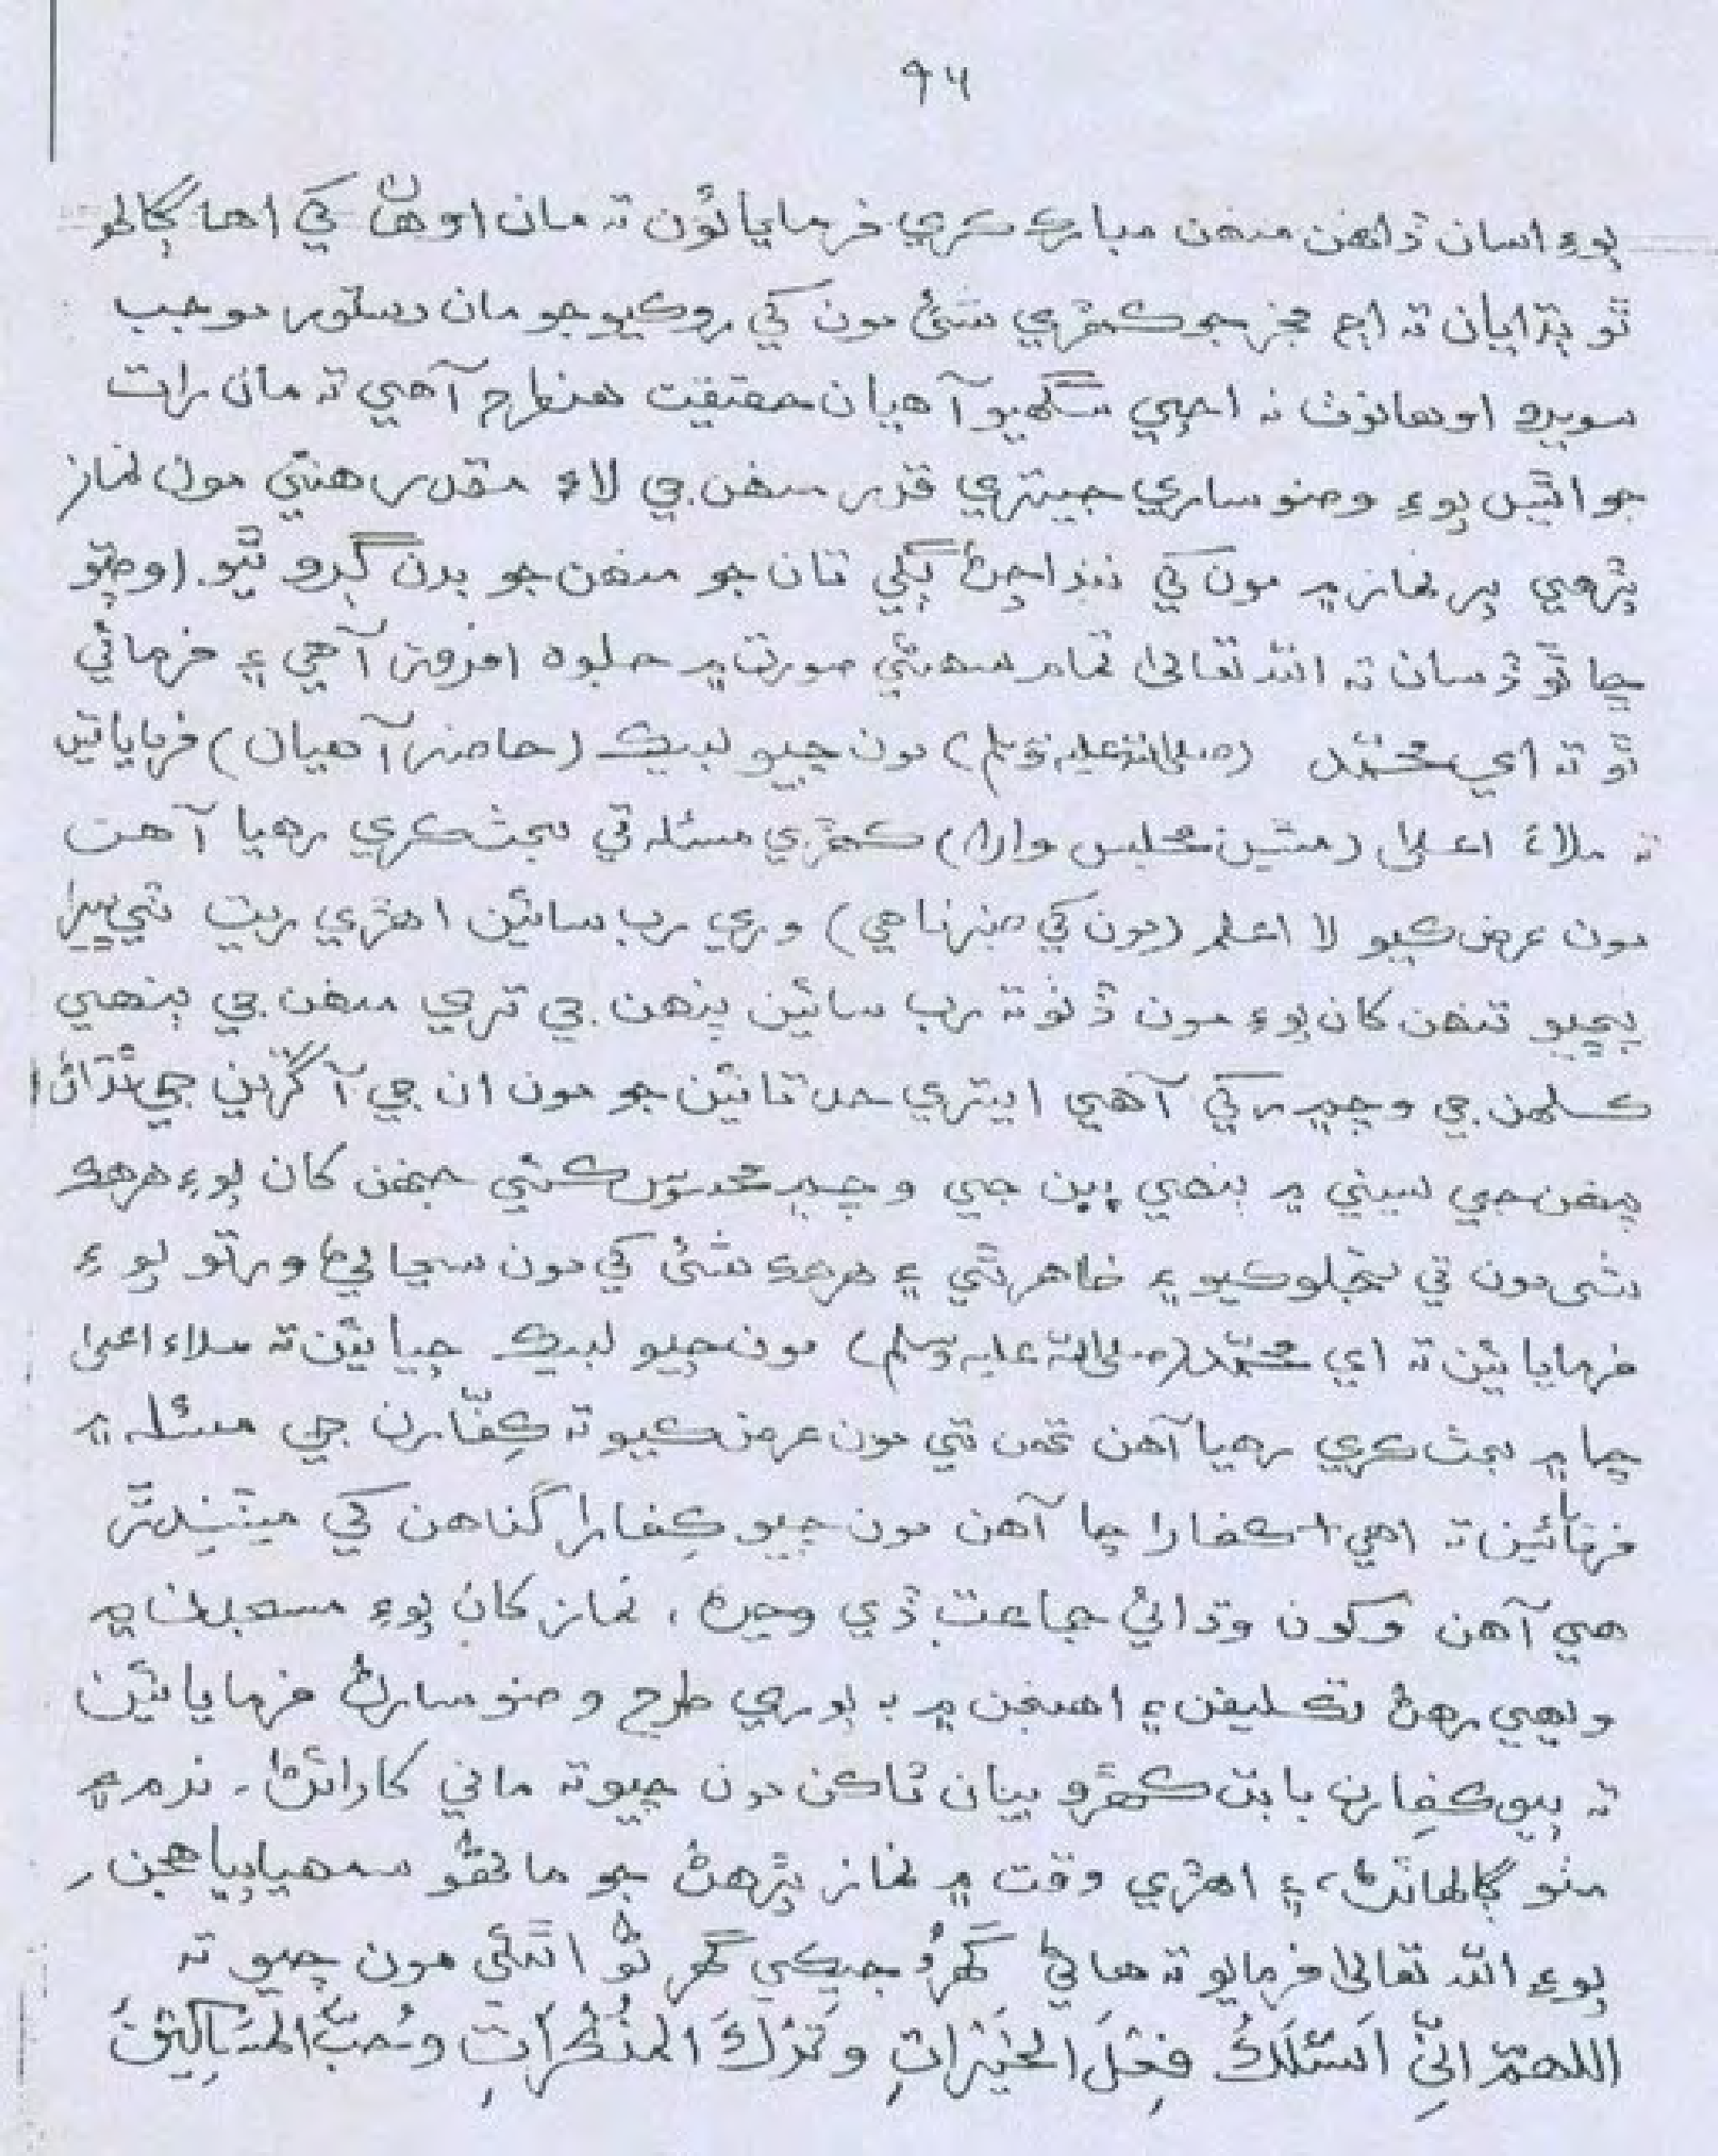 ٩٦
پوءِ اسان ڏانهن منهن مبارڪ ڪري فرمايائون ته مان اوهان کي اها ڳالهه
ٿو ٻڌايان ته اڄ فجر جو ڪهڙي شئ مون کي روڪيو جو مان دستور موجب
سويرو اوهانوٽ نه اچي سگهيو آهيان حقيقت هنطرح آهي ته مان رات
جو اٿيس پوءِ وضو ساري جيتري قدر منهن جي لاءِ مقدر هئي مون نماز
پڙهي پر نماز ۾ مون کي ننڊ اچڻ لڳي تان جو منهن جو بدن ڳرو ٿيو. اوچتو
ڇا ٿو ڏسان ته الله تعاليٰ تمام سهڻي صورت ۾ جلوه افروز آهي ۽ فرمائي
ٿو ته اي محمّد (صلي الله عليه وسلم) مون چيو لبيڪ (حاضر آهيان) فرمايائين
ته ملاءِ اعليٰ (مٿين مجلس وارا) ڪهڙي مسئله تي بحث ڪري رهيا آهن
مون عرض ڪيو لا اعلم (مون کي خبر ناهي) وري رب سائين اهڙي ريت ٽي ڀيرا
پڇيو تنهن کان پوءِ مون ڏٺو ته رب سائين پنهن جي تري منهن جي ٻنهي
ڪلهن جي وچ ۾ رکي آهي ايتري حد تائين جو مون ان جي آڱرين جي ٿڌاڻ
منهن جي سيني ۾ ٻنهي ٻين جي وچ ۾ محسوس ڪئي جنهن کان پوءِ هرهڪ
شي مون تي تجلو ڪيو ۽ ظاهر ٿي ۽ هرهڪ شئ کي مون سڃاڻي ورتو پوءِ
فرمايائين ته اي محمّد (صلي الله عليه وسلم) مون چيو لبيڪ چيائين ته ملاء اعليٰ
ڇا ۾ بحث ڪري رهيا آهن تنهن تي مون عرض ڪيو ته ڪِفّارن جي مسئله ۾
فرمائين ته اهي ڪفارا ڇا آهن مون چيو ڪِفارا گناهن کي ميٽيندڙ
هي آهن وکون وڌائي جماعت ڏي وڃڻ، نماز کان پوءِ مسجدن ۾
ويهي رهڻ تڪليفن ۽ اهنجن ۾ به پوري طرح وضو سارڻ فرمايائين
ته ٻيو ڪفارن بابت ڪهڙو بيان ٿا ڪن مون چيو ته ماني کارائڻ، نرم ۽
مٺو ڳالهائڻ، ۽ اهڙي وقت ۾ نماز پڙهڻ جو ماڻهو سمهيا پيا هجن،
پوءِ الله تعاليٰ فرمايو ته هاڻي گهرُ جيڪي گهرڻو اٿئي مون چيو ته
اللهمّ انّي اَسئلڪَ فِعلَ الخَيرَاتِ وَتَرڪَ المُنڪَرَاتِ وَحُبَّ المَسَاڪِينَ